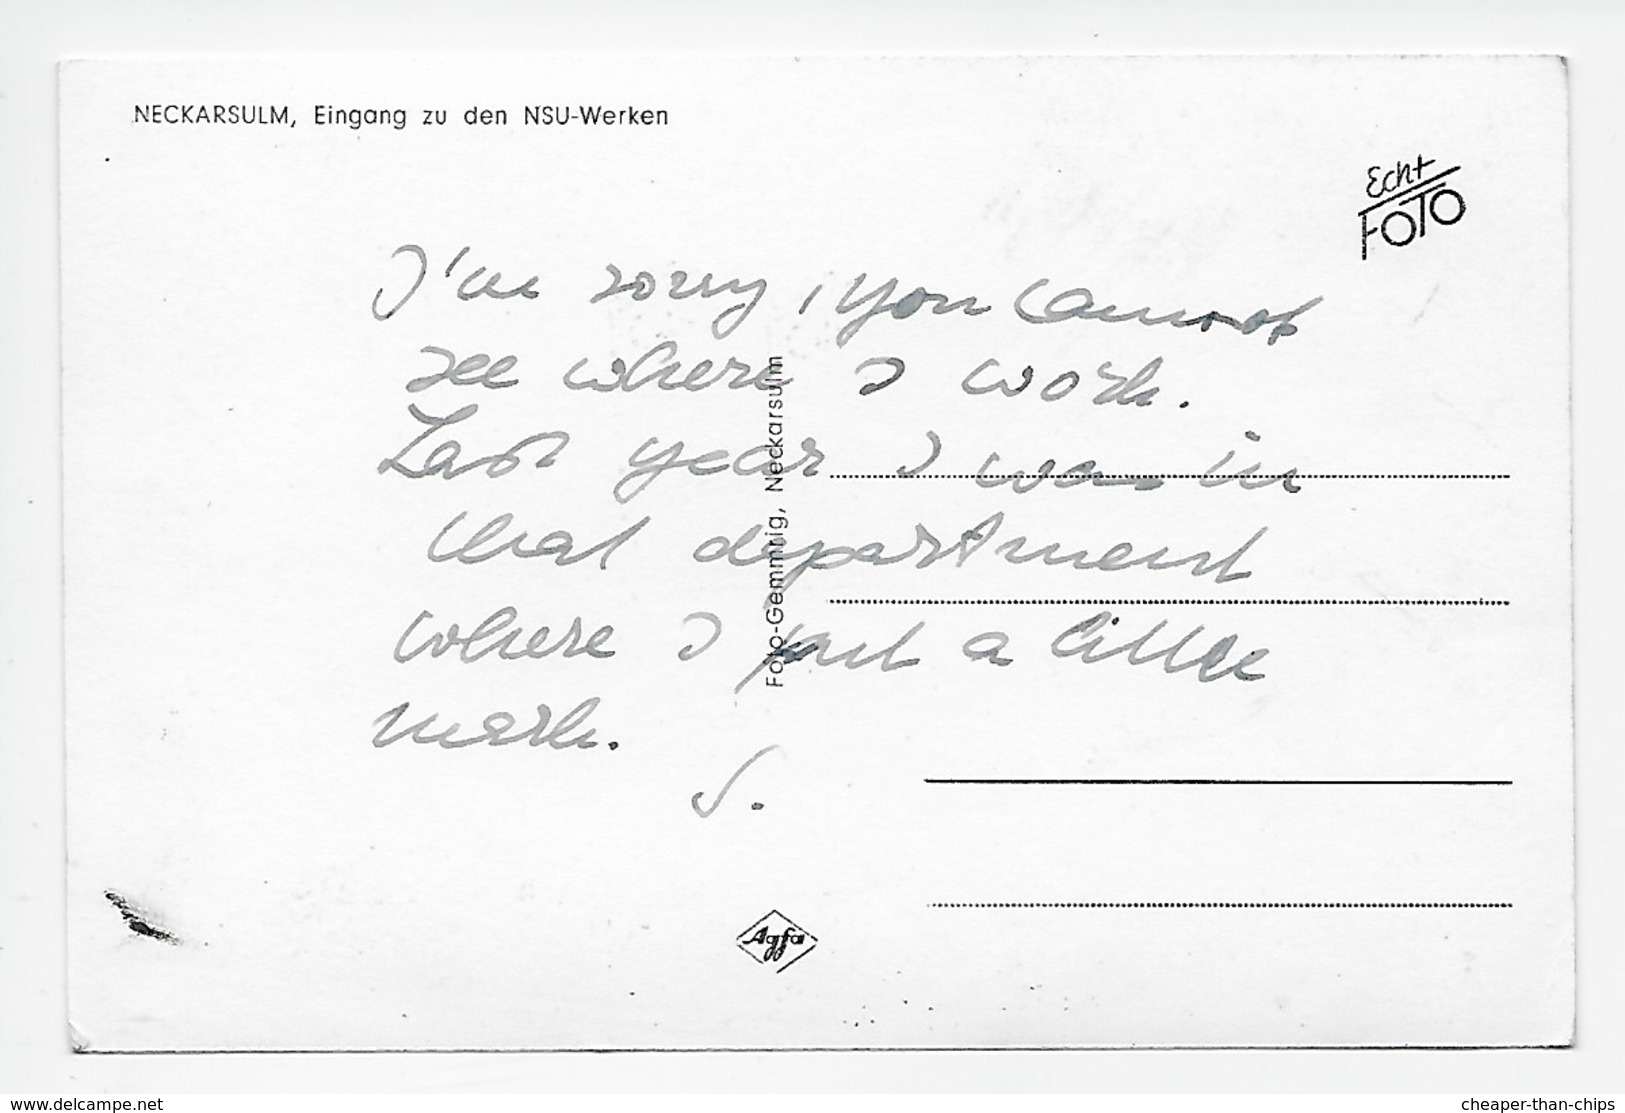 NECKARSULM, Eingang zu den NSU-Werken
Echt
FOTO
I'm sorry, you cannot
see where I work.
Last year I was in
that department
where I put a little
mark.
S.
Foto-Gemmrig, Neckarsulm
Agfa
www.delcampe.net
cheaper-than-chips